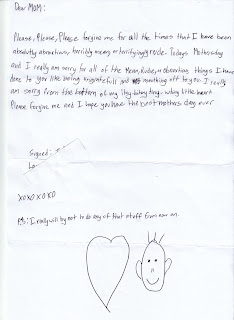 Dear MOM:
Please, Please, Please forgive me for all the times that I have been
absolutly obnoxious, terribly messy or terrifyingly rude. Today's Mothers day
and I really am sorry for all of the Mean, Rude, or obnoxious things I have
done to you like being ungratefull and mouthing off to you. I really
am sorry from the bottom of my itty-bitty-ting-whiny little heart
Please forgive me and I hope you have the best mothers day ever
Signed:
XOXOXOXO
P.S: I really will try not to do any of that stuff from now on.